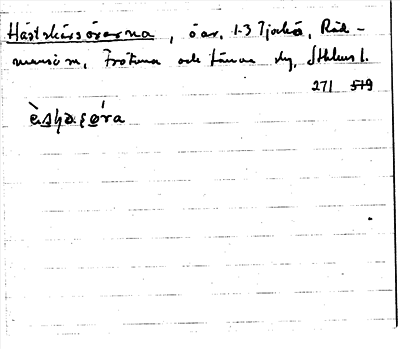 Hästskärsörarna, öar, 1-3 Tjockö, Råd-
mansö sn, Frötuna och Länna skg, Sthlms l.
271 519